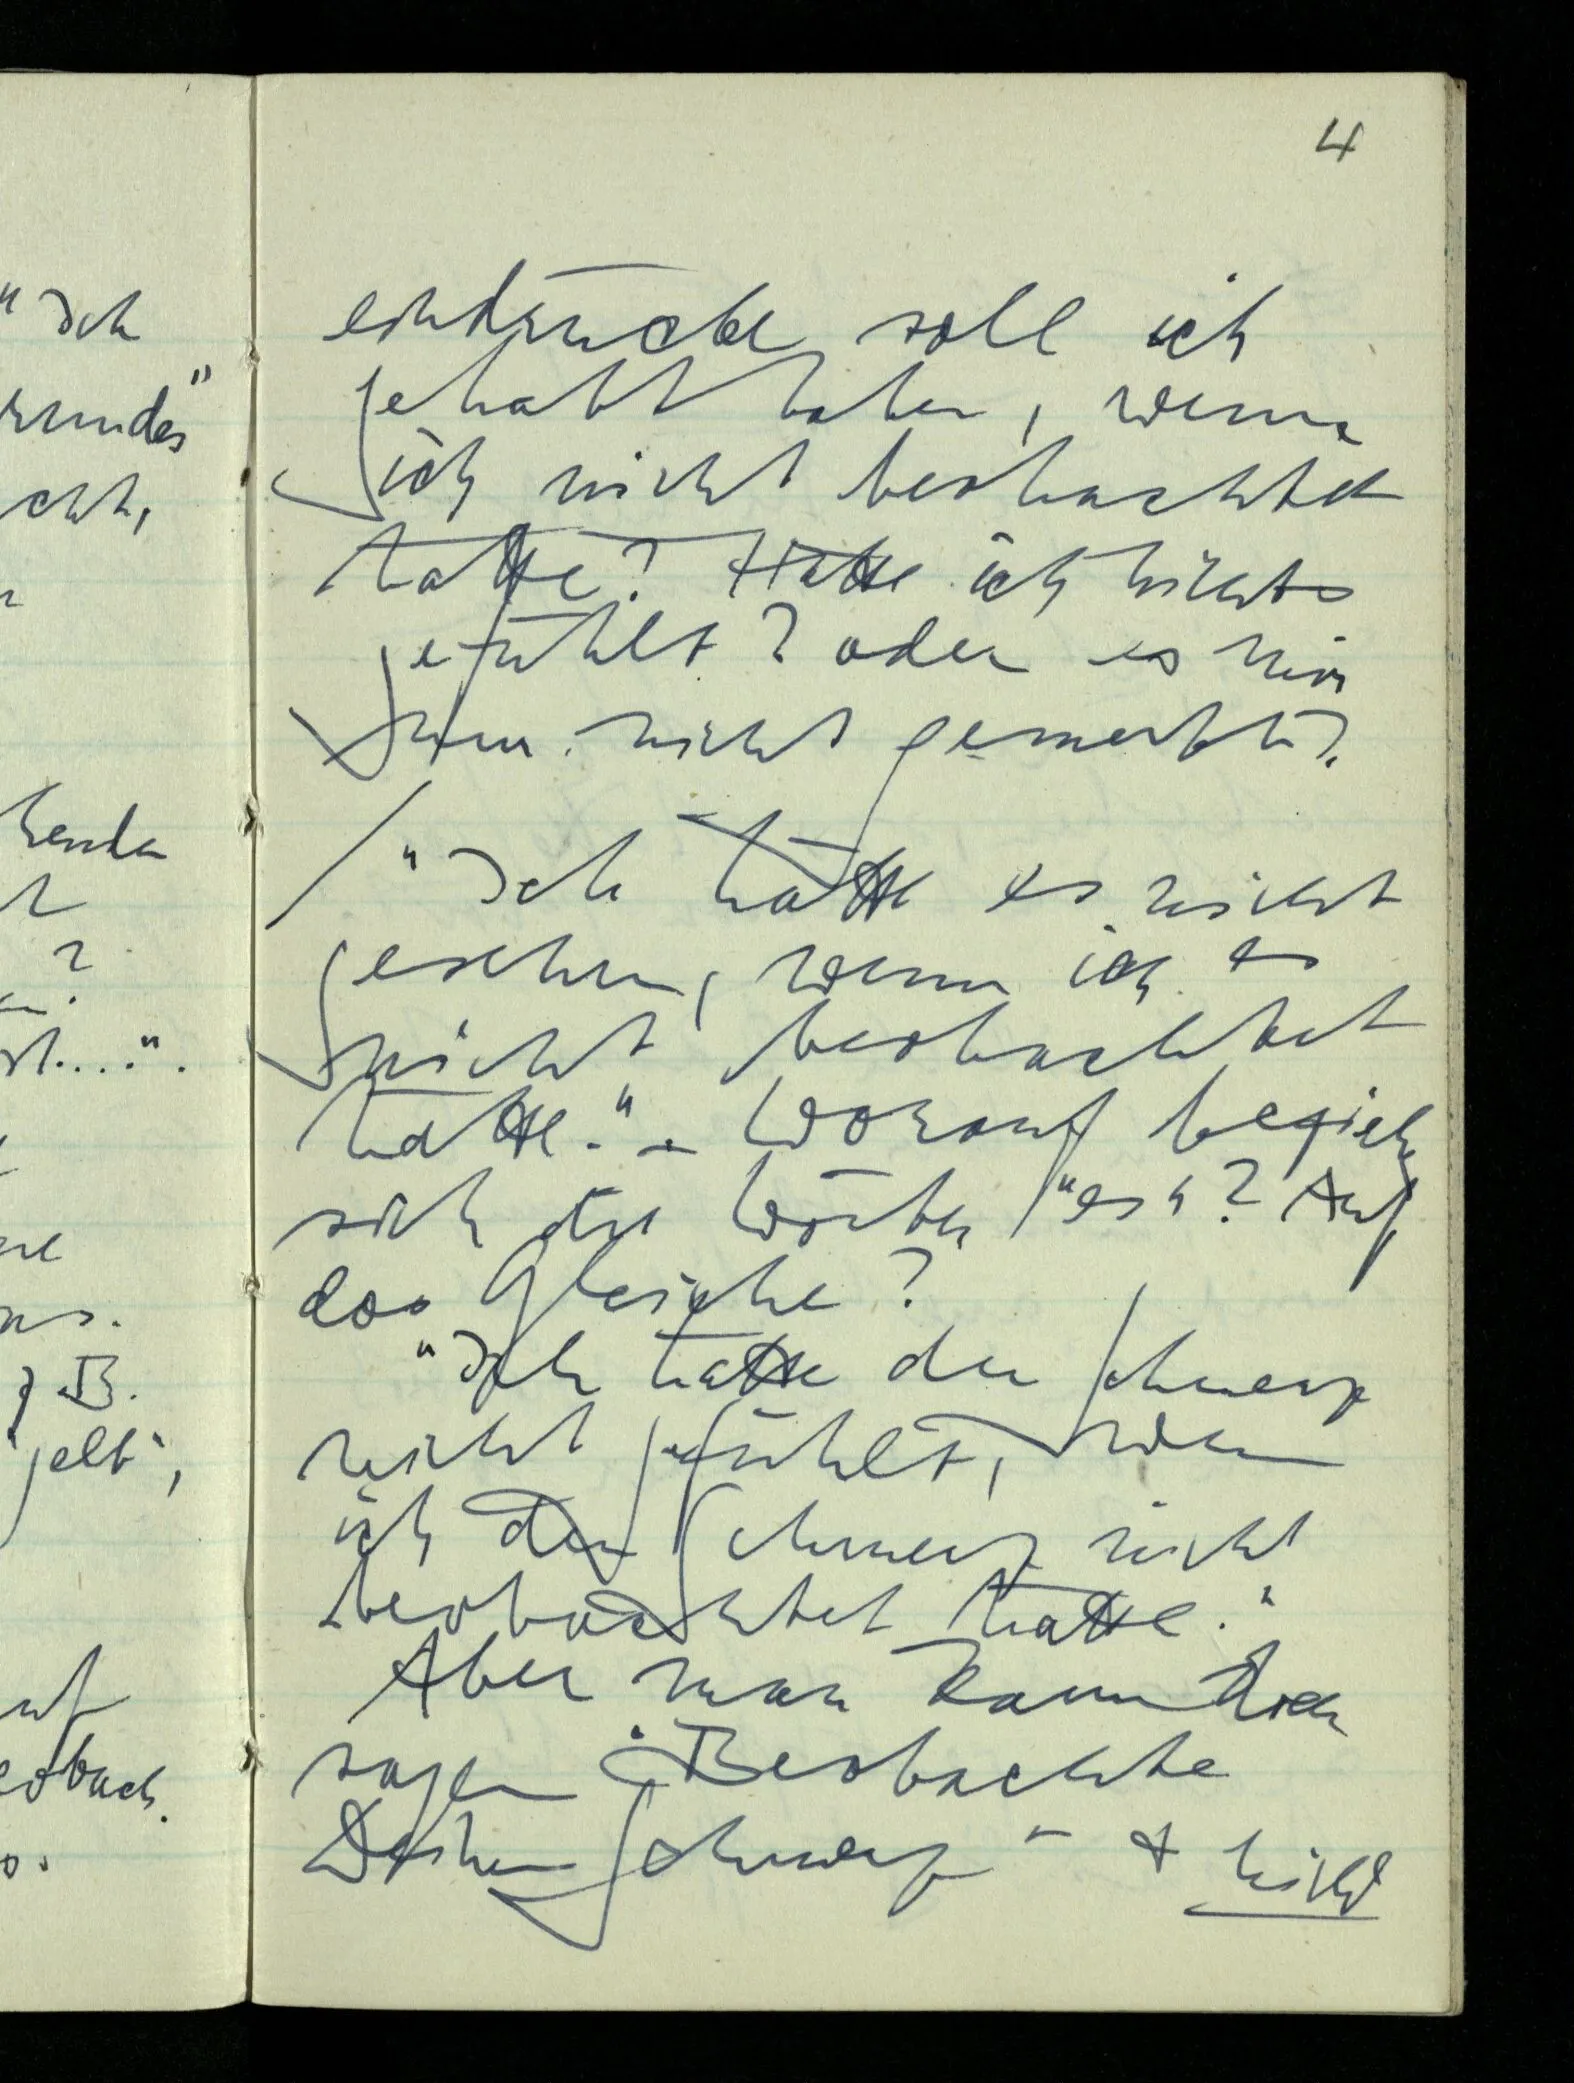 4
"Ich
rundes"
cht,
t....".
z.B.
gelb",
eobach.
eindrücke soll ich
gehabt haben, wenn
ich nicht beobachtet
hätte? Hätte ich nichts
gefühlt? oder es mir
nur nicht gemerkt?
/ "Ich hätte es nicht
gesehen, wenn ich es
nicht beobachtet
hätte." – Worauf bezieh
sich die Wörter "es"? Auf
das Gleiche?
"Ich hätte den Schmerz
nicht gefühlt, wenn
ich den Schmerz nicht
beobachtet hätte."
Aber man kann doch
sagen "Beobachte
Deinen Schmerz" & nicht